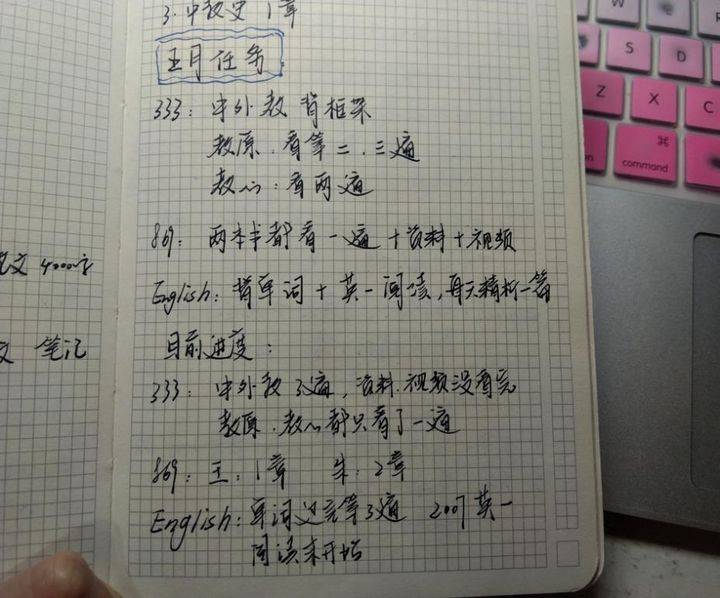 3. 中教史 1章
五月任务
333: 中外教 背框架
教原. 看第二.三遍
教心: 看两遍
869: 两本书都看一遍 + 资料 + 视频
文 4000字
English: 背单词 + 英一阅读, 每天精析一篇
文 笔记
目前进度:
333: 中外教 3遍, 资料.视频没看完
教原. 教心都只看了一遍
869: 王: 1章 朱: 2章
English: 单词过完第3遍 2007英一
阅读未开始
S
D
Z
X
C
⌘
command